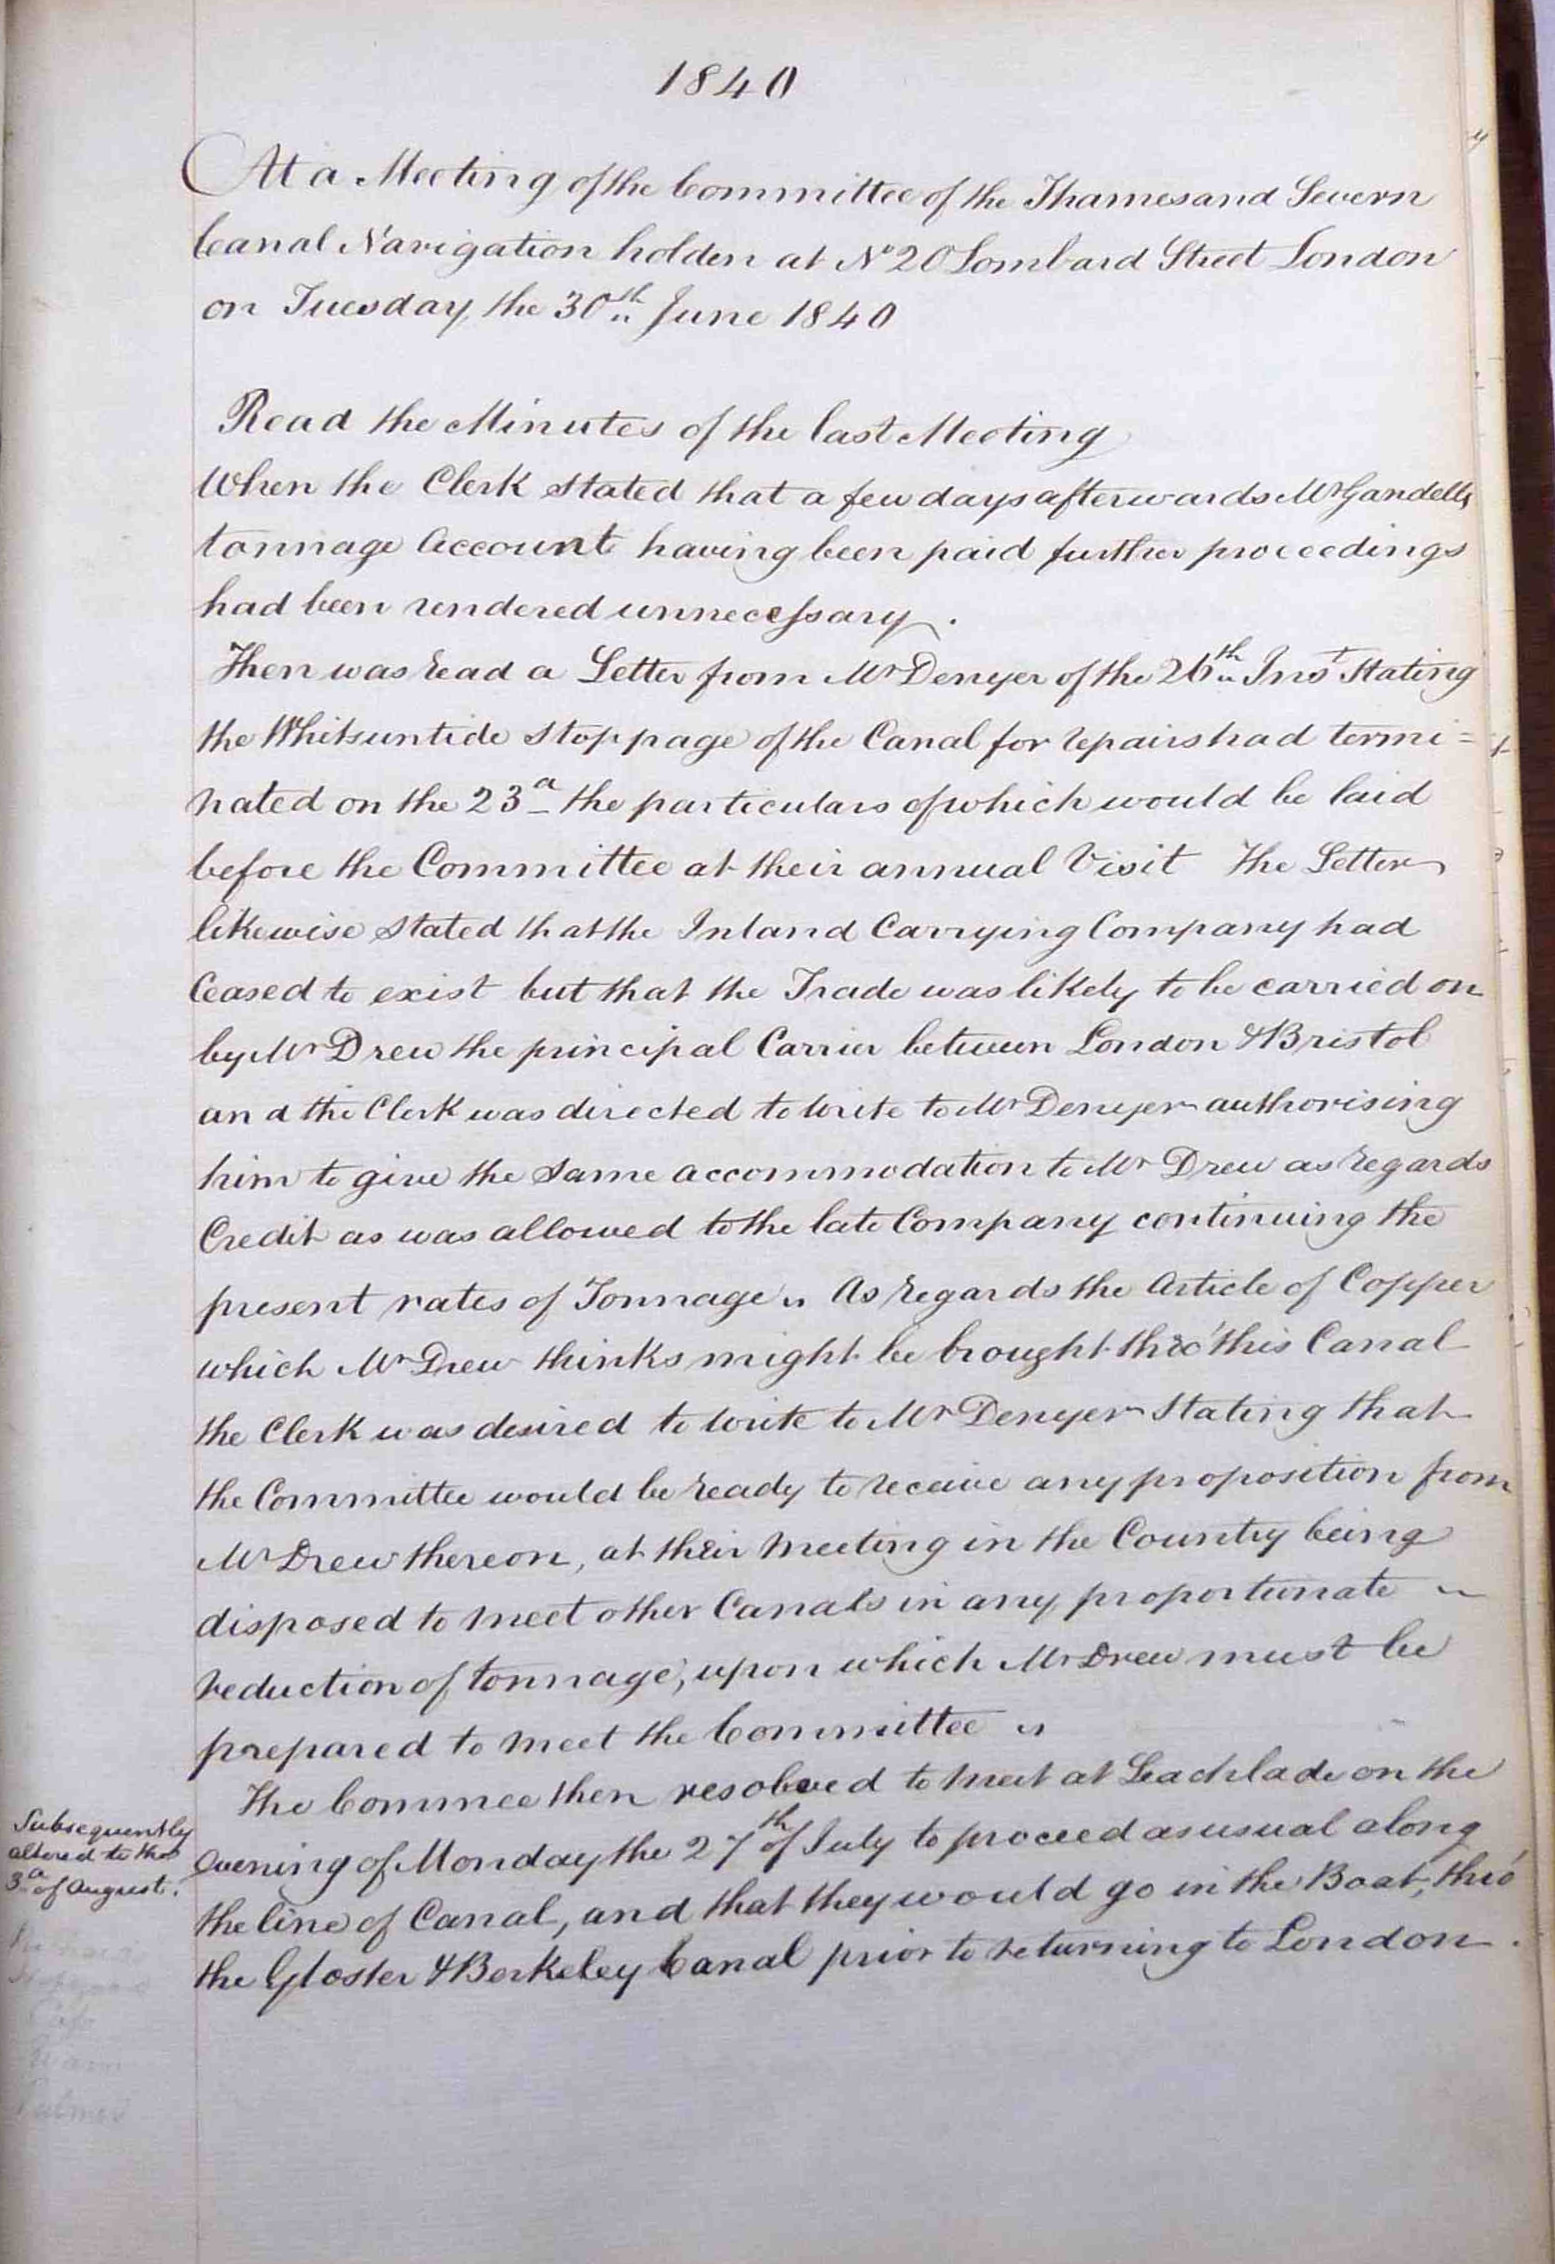 1840
At a Meeting of the Committee of the Thames and Severn
Canal Navigation holden at No 20 Lombard Street London
on Tuesday the 30th June 1840
Read the Minutes of the last Meeting
When the Clerk stated that a few days afterwards Mr Gandells
tonnage Account having been paid further proceedings
had been rendered unnecessary.
Then was read a Letter from Mr Denyer of the 26th Inst Stating
the Whitsuntide stoppage of the Canal for repairs had termi=
nated on the 23d the particulars of which would be laid
before the Committee at their annual Visit The Letter
likewise stated that the Inland Carrying Company had
Ceased to exist but that the Trade was likely to be carried on
by Mr Drew the principal Carrier between London & Bristol
and the Clerk was directed to write to Mr Denyer authorising
him to give the same accommodation to Mr Drew as regards
Credit as was allowed to the late Company continuing the
present rates of Tonnage. As regards the Article of Copper
which Mr Drew thinks might be brought thro' this Canal
the Clerk was desired to write to Mr Denyer Stating that
the Committee would be ready to receive any proposition from
Mr Drew thereon, at their Meeting in the Country being
disposed to meet other Canals in any proportunate
reduction of tonnage, upon which Mr Drew must be
prepared to meet the Committee
The Commee then resolved to meet at Leachlade on the
Subsequently
altered to the
3d of August.
evening of Monday the 27th of July to proceed as usual along
the line of Canal, and that they would go in the Boat, thro'
the Gloster & Berkeley Canal prior to returning to London.